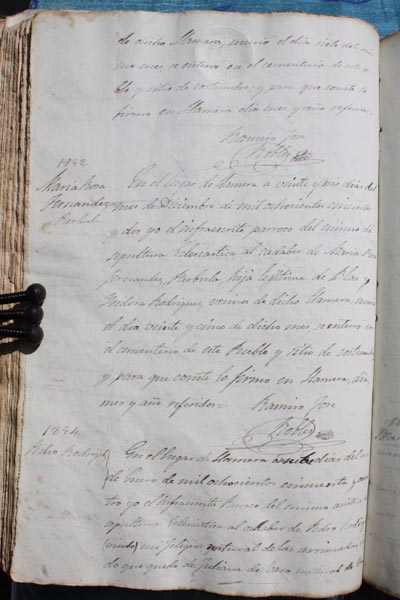 de dicho Llamera murió el dia siete del
mes se enterro en el cementerio de este
blo y sitio de costumbre, y para que conste lo
firmo en Llamera dia mes y año
Ramiro Jose
Robles
1852
Maria Rosa
Fernandez
Parbula
En el lugar de Llamera a veinte y seis dias del
mes de Diciembre de mil ochocientos cincuenta
y dos yo el infraescrito parroco del mismo di
sepultura Eclesiastica al cadaber de Maria Rosa
Fernandez, Parbula, hija legitima de Blas, y
Isidora Rodriguez, vecinos de dicho Llamera, murio
el dia veinte y cinco de dicho mes, se enterro en
el cementerio de este Pueblo y sitio de costumbre
y para que conste lo firmo en Llamera, dia,
mes y año referidos
Ramiro Jose
Robles
1854
Pedro Rodriguez
En el lugar de Llamera a siete dias del mes
de Enero de mil ochocientos cincuenta y cua
tro, yo el infraescrito Parroco del mismo di
sepultura Eclesiastica al cadaber de Pedro
(viudo) mi feligres natural de las
do que quedo de Juliana de natural de